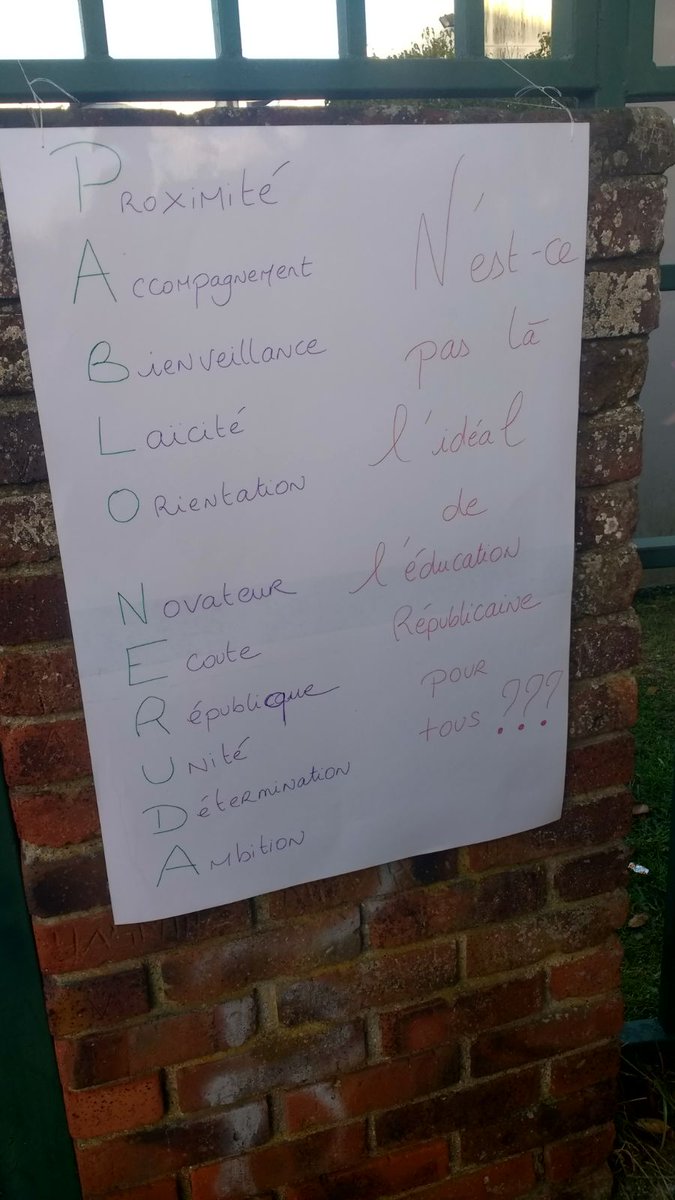 Proximité
Accompagnement
Bienveillance
Laïcité
Orientation
Novateur
Ecoute
République
Unité
Détermination
Ambition
N'est-ce
pas là
l'idéal
de
l'éducation
Républicaine
pour
tous ???